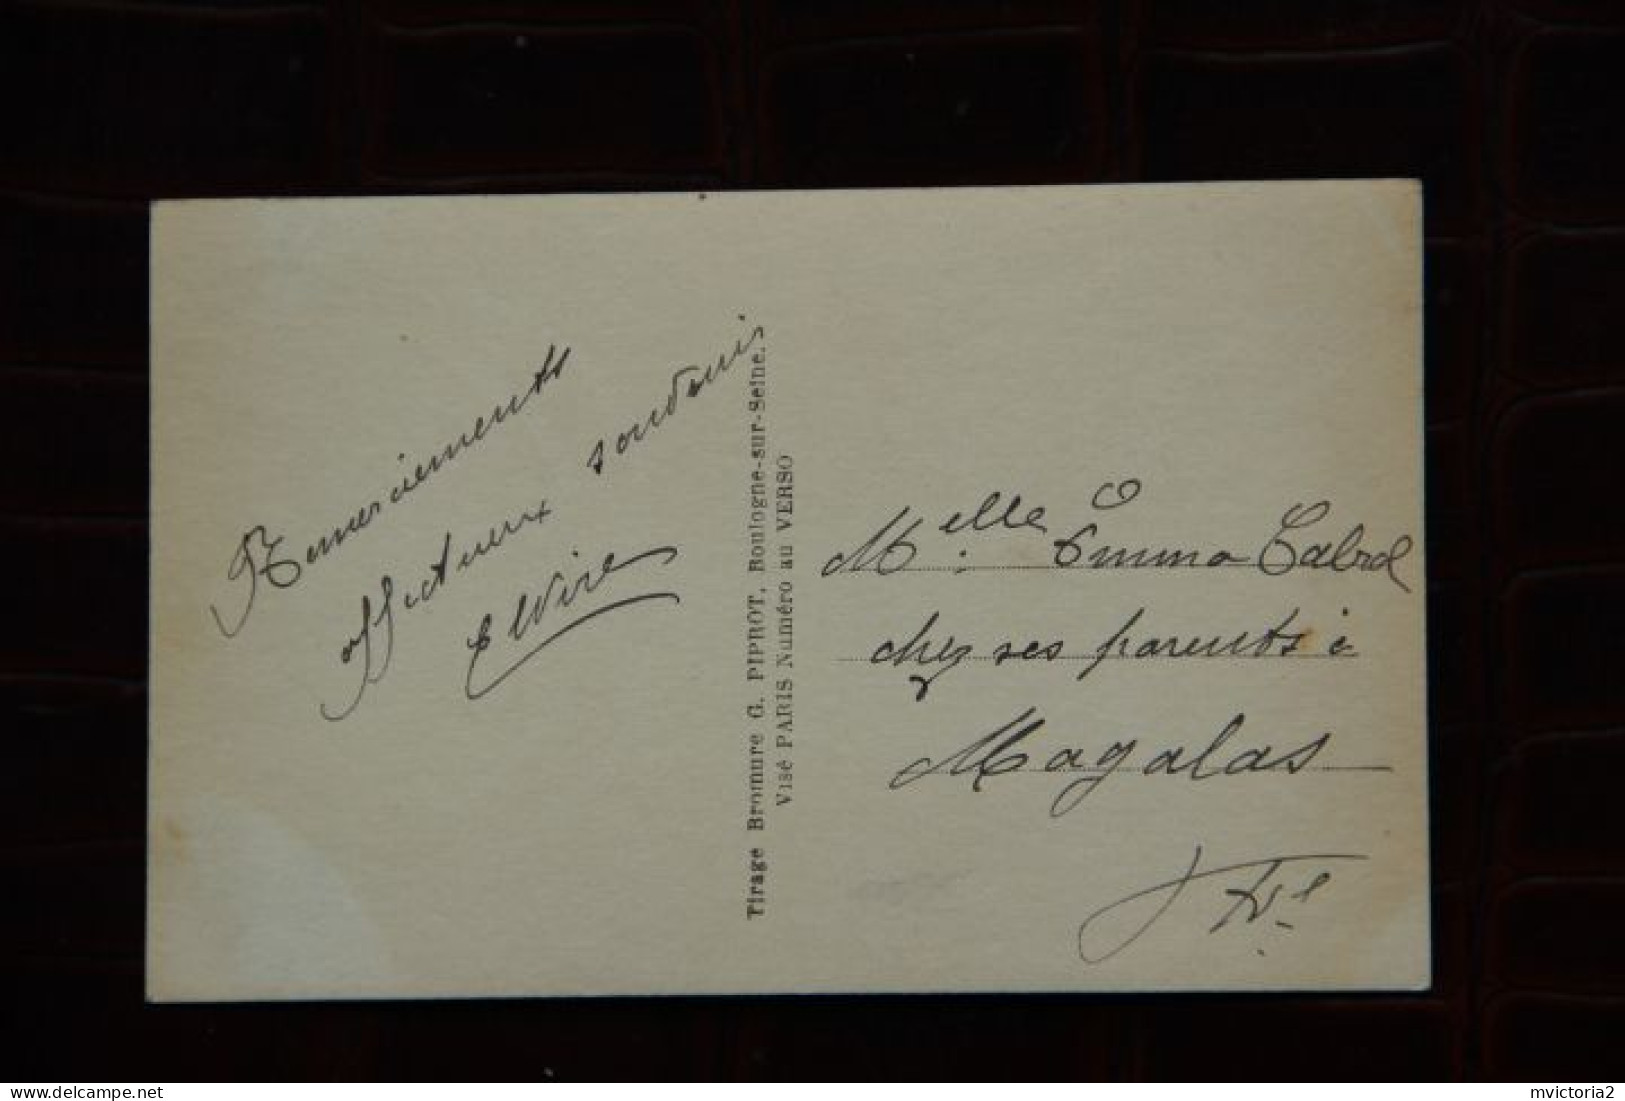 Remerciements
affectueux
Elvire
Tirage Bromure G. PIPROT, Boulogne-sur-Seine.
Visé PARIS Numéro au VERSO
Melle Emma Cabrol
chez ses parents à
Magalas
mvictoria2